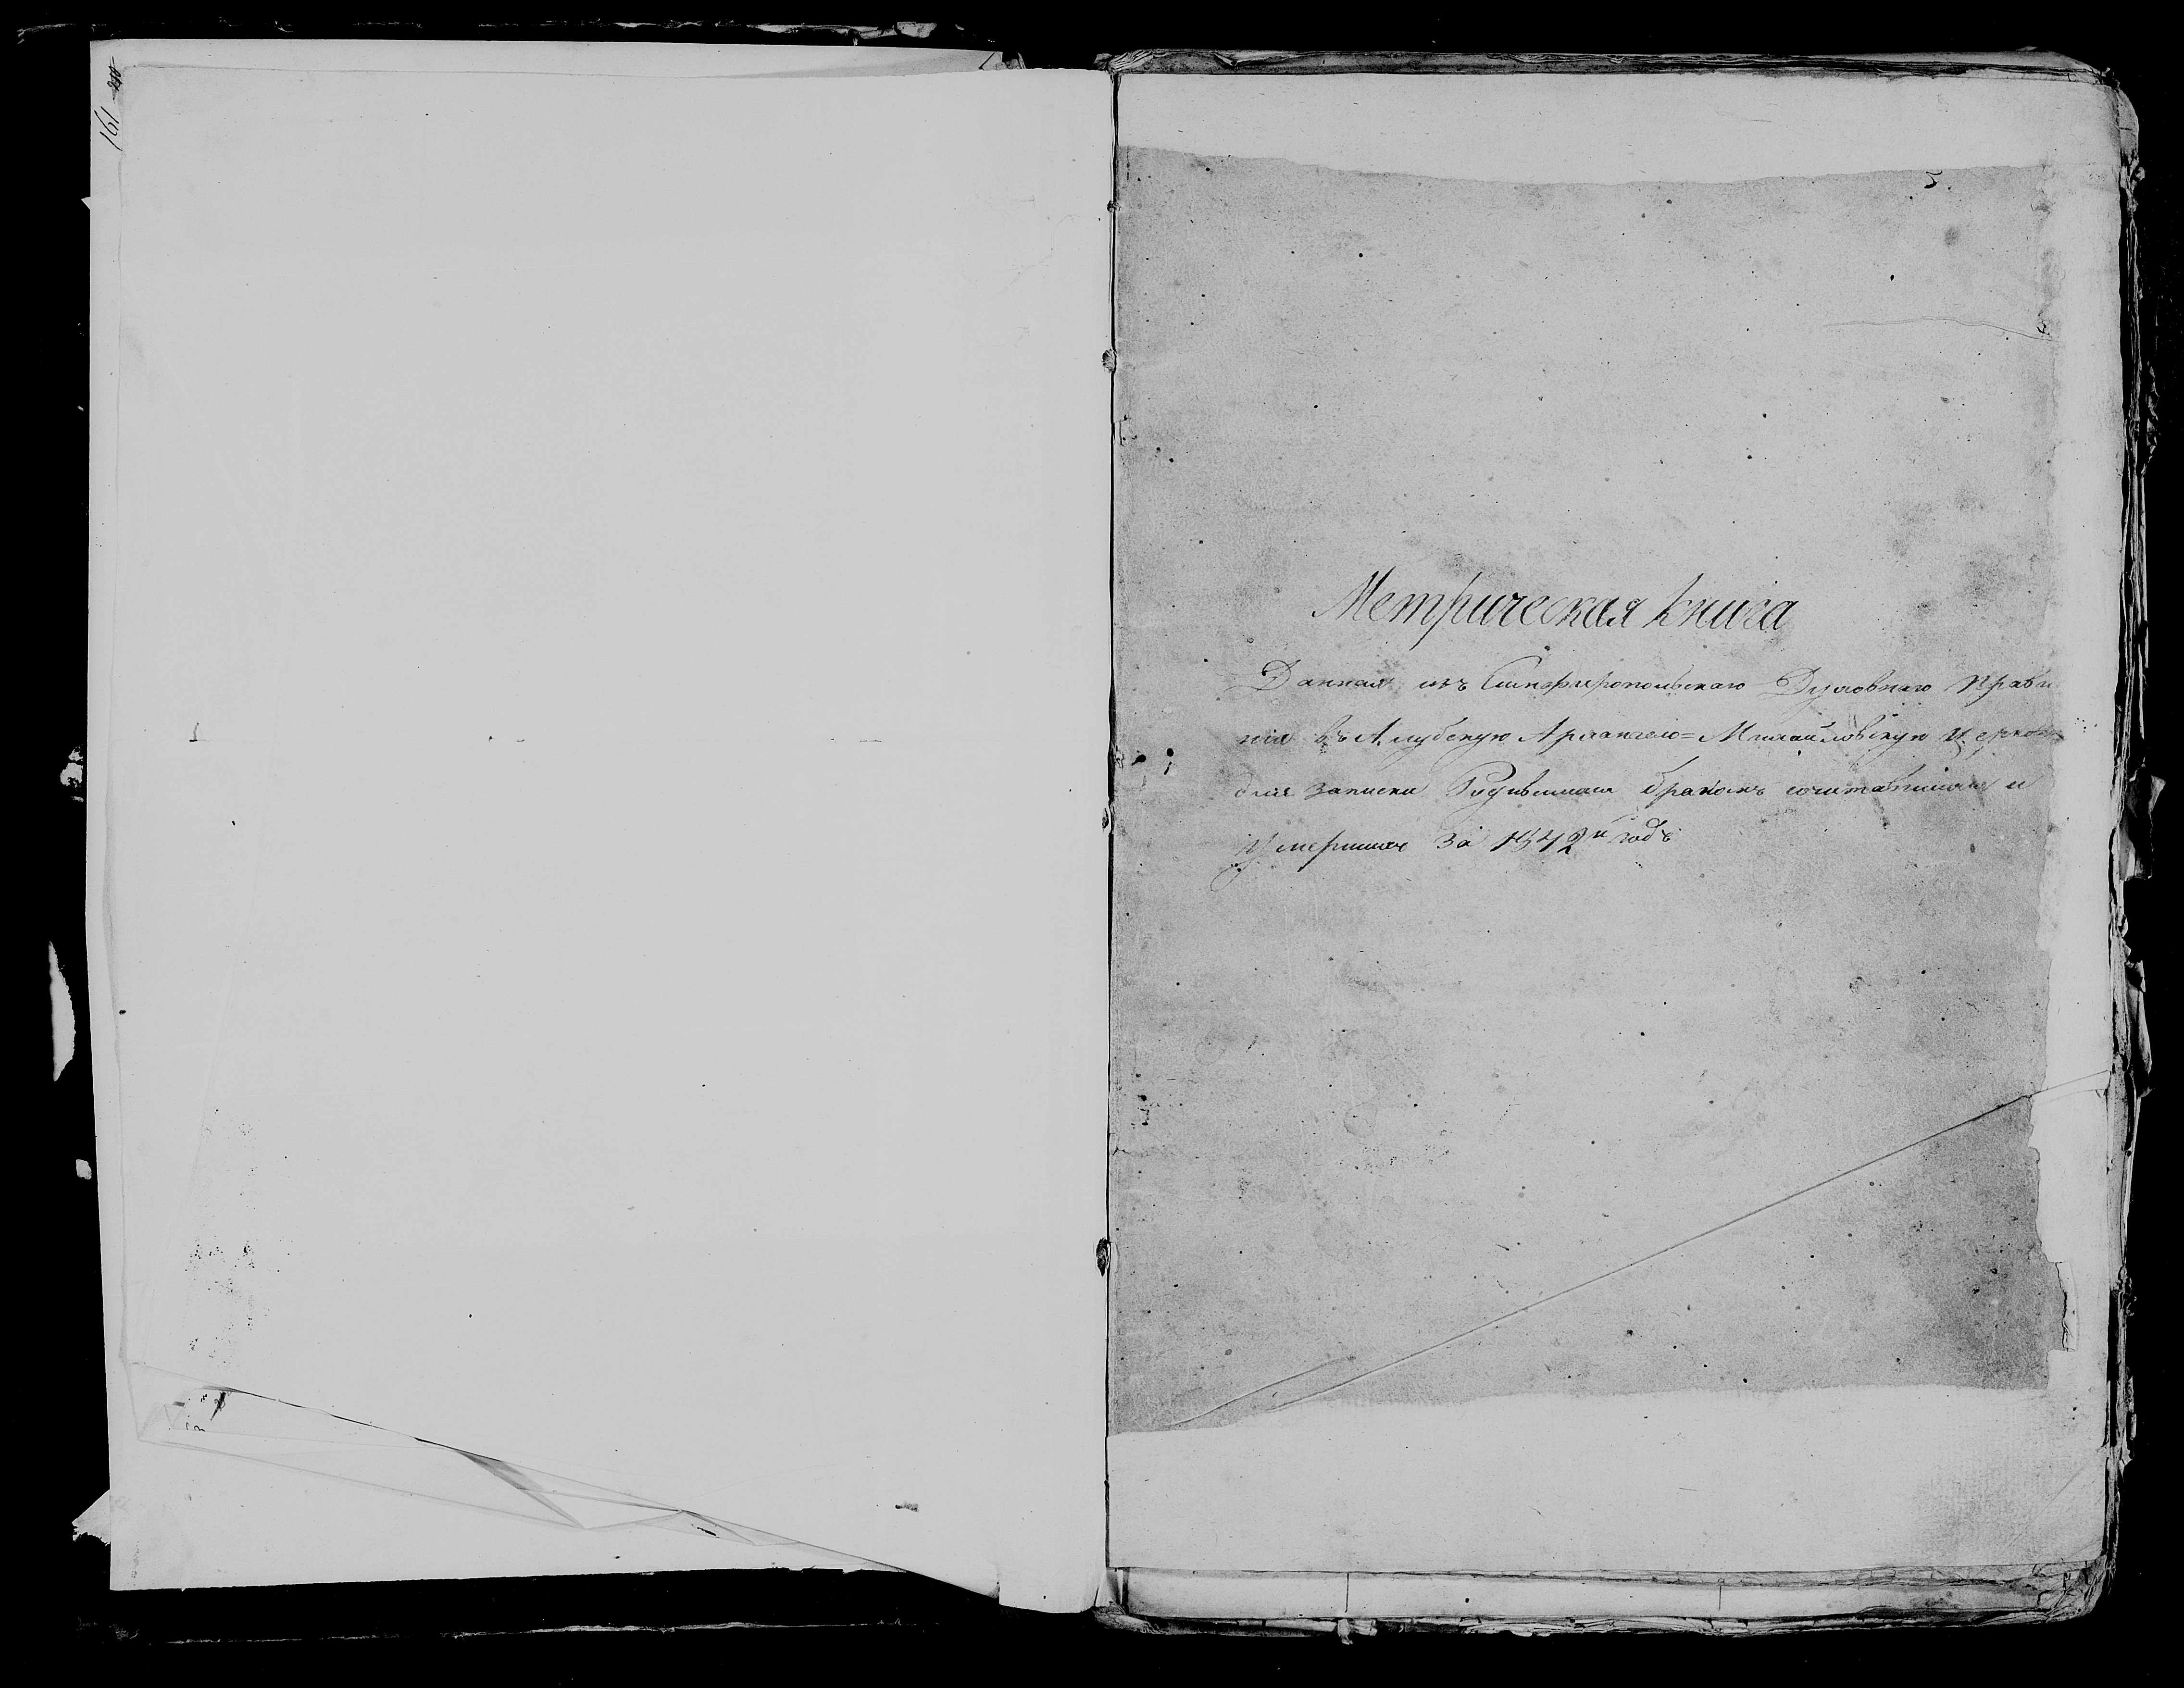 161
Метрическая книга
Данная изъ Симферопольскаго Духовнаго Правл
нія въ Алубскую Архангело=Михайловскую Церковь
для записки Родившихся бракомъ сочитавшихся и
Умершихъ за 1842й годъ